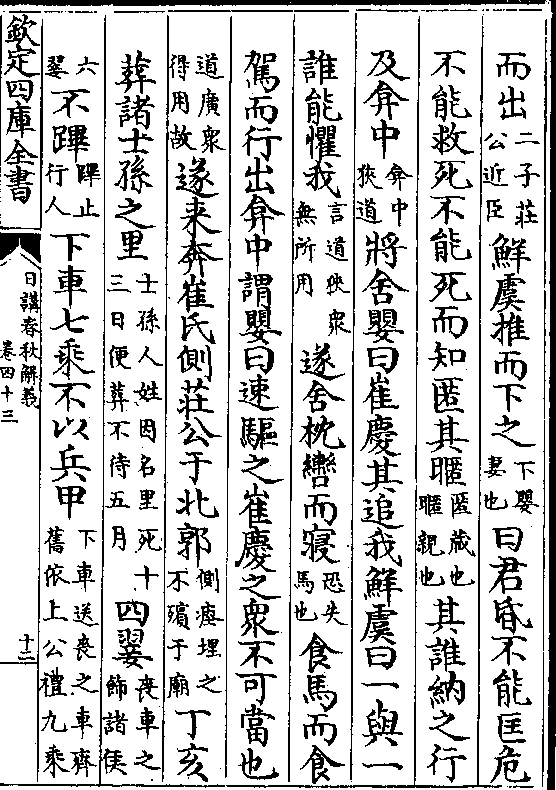 而出二子莊公近臣鮮虞推而下之下嬰妻也曰君昏不能匡危
不能救死不能死而知匿其暱匿藏也暱親也其誰納之行
及弇中弇中狹道將舍嬰曰崔慶其追我鮮虞曰一與一
誰能懼我言道狹衆無所用遂舍枕轡而寢恐失馬也食馬而食
駕而行出弇中謂嬰曰速驅之崔慶之衆不可當也
道廣衆得用故遂来奔崔氏側莊公于北郭側瘞埋之不殯于廟丁亥
葬諸士孫之里士孫人姓因名里死十三日便葬不待五月四翣喪車之飾諸侯
六翣不蹕蹕止行人下車七乘不以兵甲下車送喪之車齊舊依上公禮九乘
欽定四庫全書
日講春秋解義
卷四十三
十二